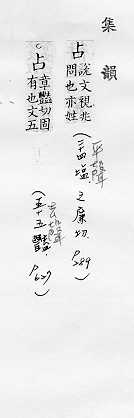 集韻
占 說文視兆
問也亦姓
(平聲
二十四塩 之廉切. P289
占 章豔切固
有也文五
(去聲
五十五豔. P627